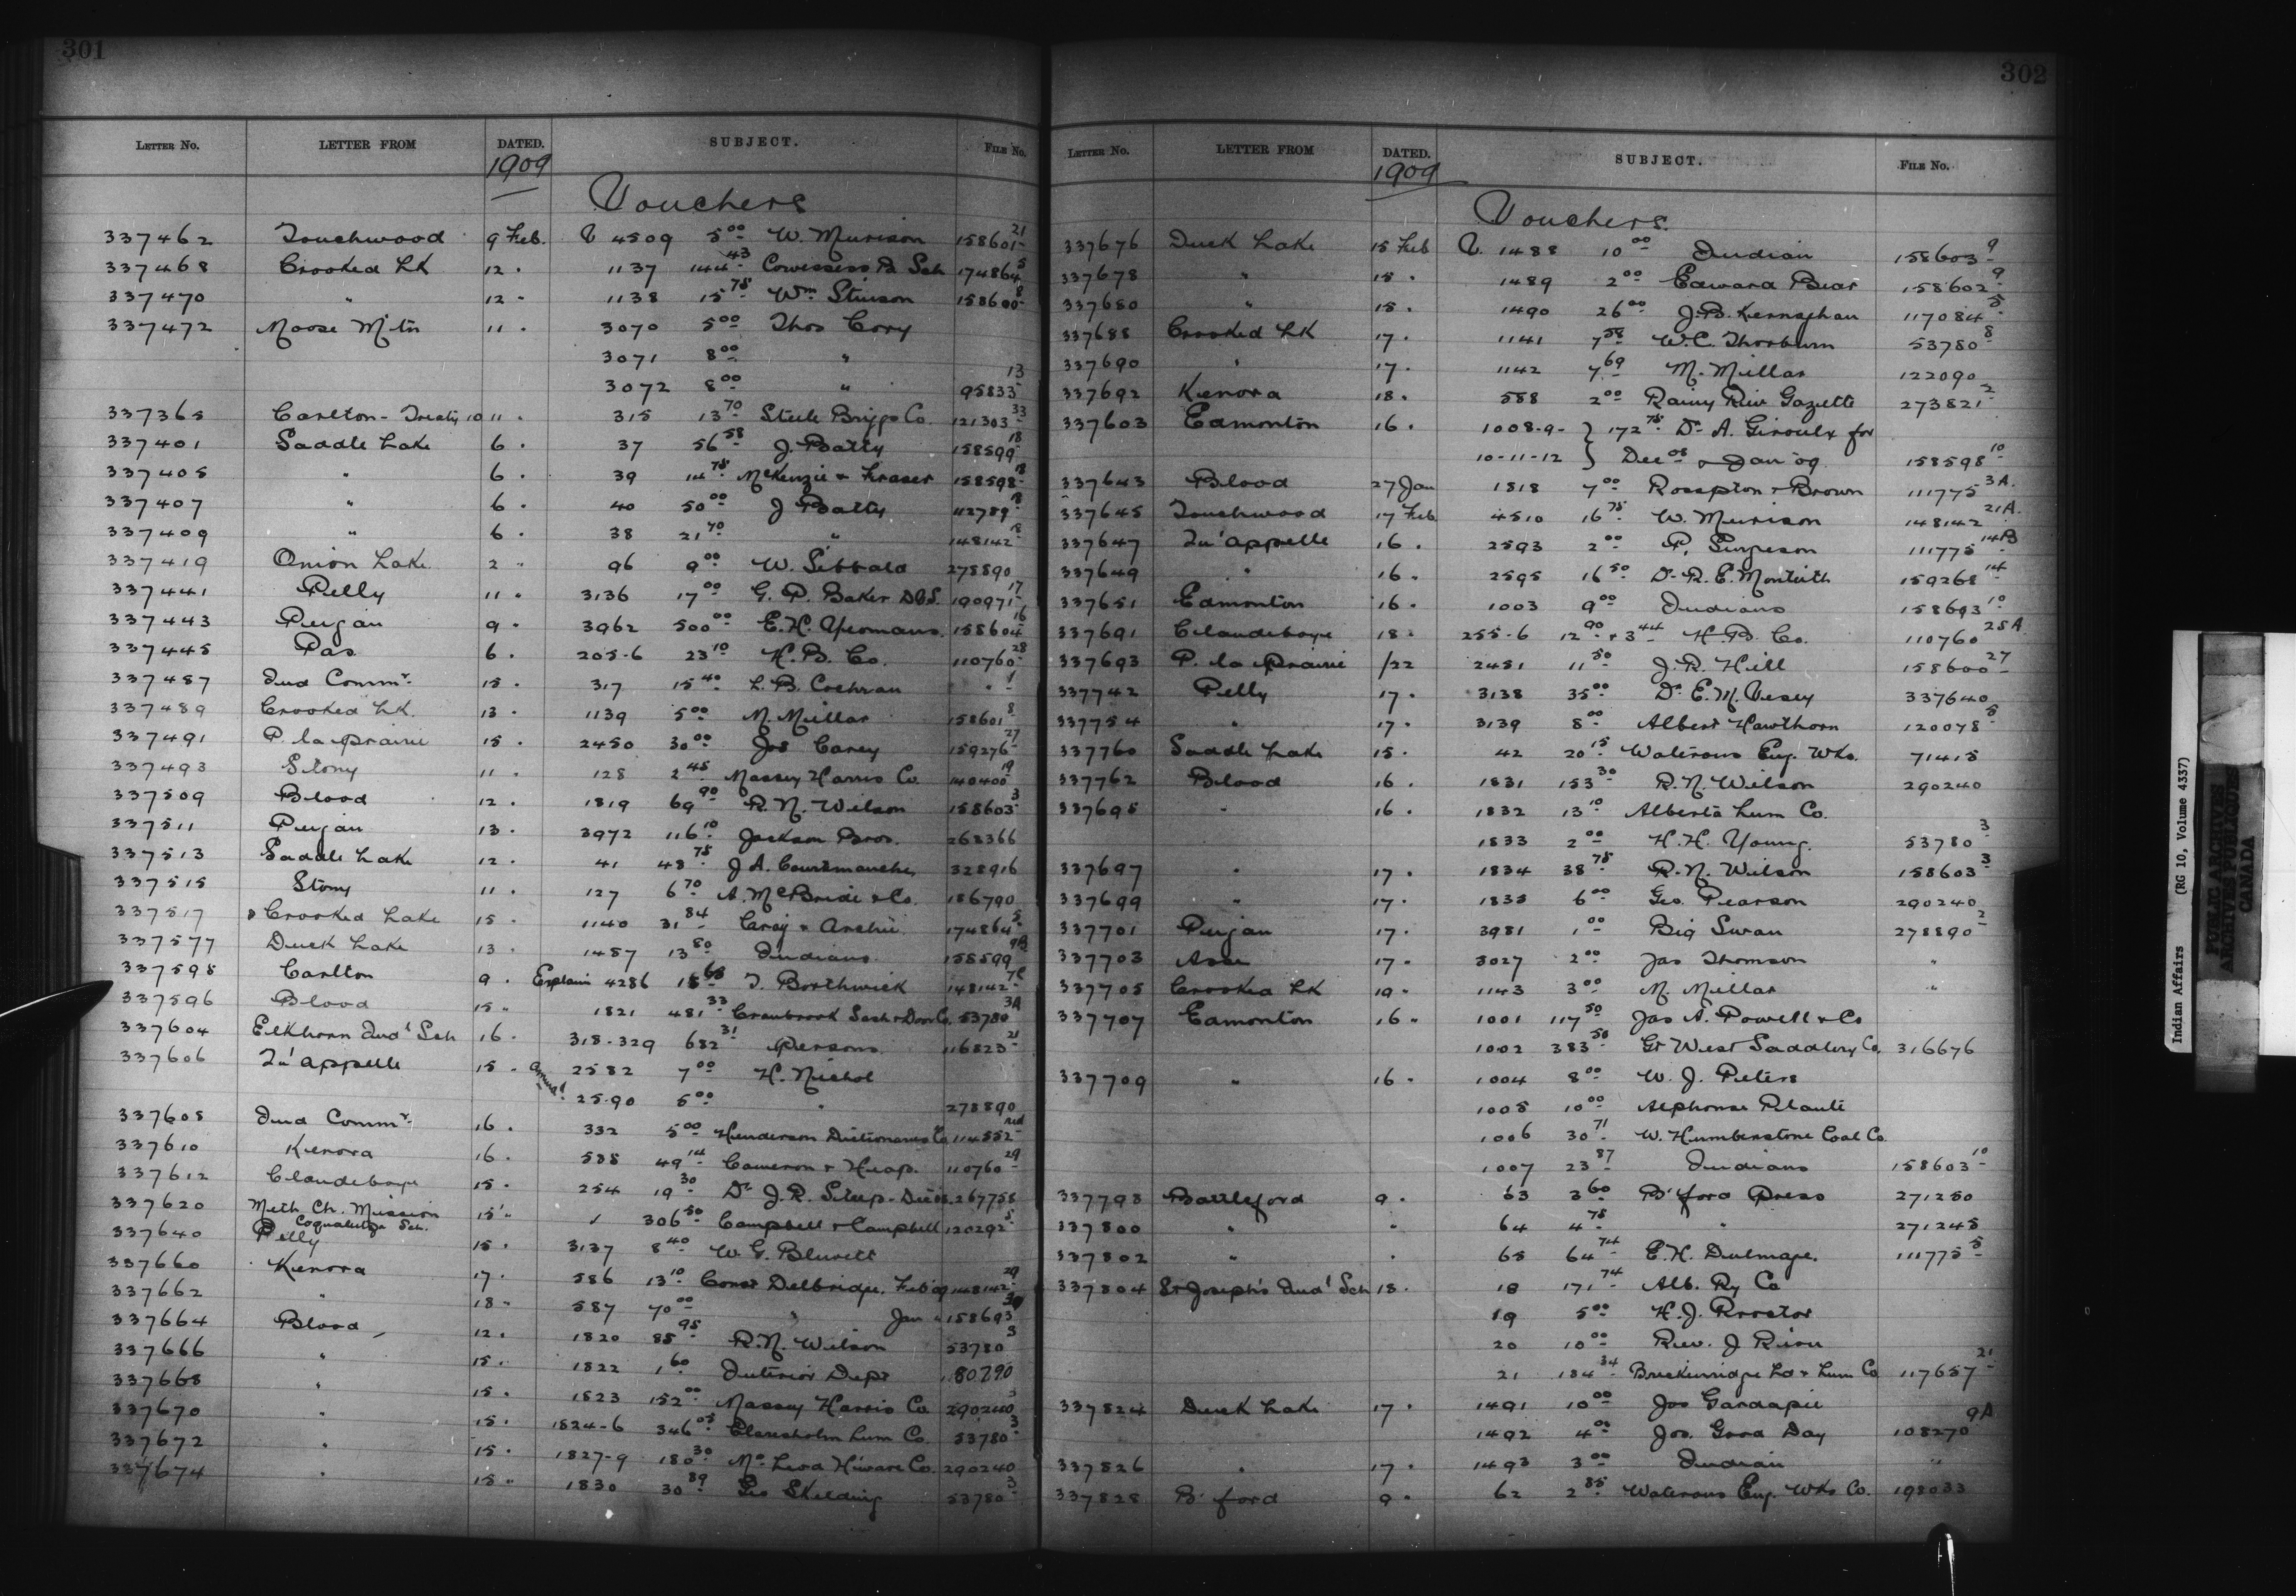 301
LETTER No. LETTER FROM DATED. SUBJECT. FILE No.
1909
Vouchers
337462 Touchwood 9 Feb. V 4509 5.00 W. Murison 158601-21
337468 Crooked Lk 12 " 1137 144.43 Cowessess Bd Sch 174864-5
337470 " 12 " 1138 15.75 Wm Stinson 158600-8
337472 Moose Mtn 11 " 3070 5.00 Thos Cory
3071 8.00 "
3072 8.00 " 95833-13
337365 Carlton - Treaty 10 11 " 315 13.70 Steele Briggs Co. 121303-33
337401 Saddle Lake 6 " 37 56.58 J. Batty 158599-18
337405 " 6 " 39 14.75 McKenzie & Fraser 158598-18
337407 " 6 " 40 50.00 J Batty 42789-18
337409 " 6 " 38 21.70 " 148142-18
337419 Onion Lake 2 " 96 9.00 W. Sibbald 278890
337441 Pelly 11 " 3136 17.00 G. P. Baker D.L.S. 190971-17
337443 Peigan 9 " 3962 500.00 E. H. Yeomans. 158604-16
337445 Pas 6 " 205-6 23.10 H. B. Co. 110760-28
337487 Ind Commr. 15 " 317 15.40 L. B. Cochran " -1
337489 Crooked Lk. 13 " 1139 5.00 M. Millar 158601-8
337491 P. la Prairie 15 " 2450 30.00 Jos Carey 159276-27
337493 Stony 11 " 128 2.45 Massey Harris Co. 140400-19
337509 Blood 12 " 1819 69.90 R. N. Wilson 158603-3
337511 Peigan 13 " 3972 116.10 Jackson Bros. 268366
337513 Saddle Lake 12 " 41 48.75 J A. Courtmanche, 328916
337515 Stony 11 " 127 6.70 A. McBride & Co. 186790
337517 Crooked Lake 15 " 1140 31.84 Craig & Archie 174864-5
337577 Duck Lake 13 " 1487 13.80 Indians 158599-9A
337595 Carlton 9 " Explain 4286 15.68 T. Borthwick 148142-7C
337596 Blood 15 " 1821 481.33 Cranbrook Sash & Door Co. 53780-3A
337604 Elkhorn Ind'l Sch 16 " 318-329 682.31 Persons 116823-21
337606 Qu'appelle 15 " 2582 7.00 H. Nichol
2590 5.00 " 278890
337608 Ind Commr. 16 " 332 5.00 Henderson Dictionaries Co 114552
337610 Kenora 16 " 585 49.14 Cameron & Heap. 110760-29
337612 Clandeboye 15 " 254 19.30 Dr J. R. Steep - 267758
337620 Meth Ch. Mission 15 " 1 306.50 Campbell & Campbell 120292-5
Coqualeetza Sch.
337640 Pelly 15 " 3137 8.40 W. G. Blewett
337660 Kenora 17 " 586 13.10 Const Delbridge, Feb'09 148142-29
337662 " 18 " 587 70.00 " Jan " 158693
337664 Blood 12 " 1820 85.95 R. N. Wilson 53780-3
337666 " 15 " 1822 1.60 Interior Dept 80790
337668 " 15 " 1823 152.00 Massey Harris Co 290240
337670 " 15 " 1824-6 346.05 Claresholm Lum Co. 53780-3
337672 " 15 " 1827-9 180.30 McLeod H'ware Co. 290240
337674 " 15 " 1830 30.89 Geo Skelding 53780-3
302
LETTER No. LETTER FROM DATED. SUBJECT. FILE No.
1909
Vouchers.
337676 Duck Lake 15 Feb V. 1488 10.00 Indian 158603-9
337678 " 15 " 1489 2.00 Edward Bear 158602-9
337680 " 15 " 1490 26.00 J. B. Kernaghan 117084-5
337688 Crooked Lk 17 " 1141 7.58 W. C. Thorburn 53780-8
337690 " 17 " 1142 7.69 M. Millar 122090
337692 Kenora 18 " 588 2.00 Rainy River Gazette 273821-2
337603 Edmonton 16 " 1008-9- } 172.75 Dr A. Giroulx for
10-11-12 } Dec 08 & Jan '09 158598-10
337643 Blood 27 Jan 1818 7.00 Rosepton & Brown 111775-3A.
337645 Touchwood 17 Feb 4510 16.75 W. Murison 148142-21A.
337647 Qu'appelle 16 " 2593 2.00 P. Surjeson 111775-14B
337649 " 16 " 2595 16.50 Dr R. E. Monteith 159268-14
337651 Edmonton 16 " 1003 9.00 Indians 158693-10
337691 Clandeboye 18 " 255-6 12.90 & 3.44 H. B. Co. 110760-25A
337693 P. la Prairie /22 2451 11.50 J. R. Hill 158600-27
337742 Pelly 17 " 3138 35.00 Dr E. M. Vesey 337640
337754 " 17 " 3139 8.00 Albert Hawthorn 120078-5
337760 Saddle Lake 15 " 42 20.15 Waterous Eng. Wks. 71415
337762 Blood 16 " 1831 153.30 R. N. Wilson 290240
337695 " 16 " 1832 13.10 Alberta Lum Co.
1833 2.00 H. H. Young. 53780-3
337697 " 17 " 1834 38.75 R. N. Wilson 158603-3
337699 " 17 " 1835 6.00 Geo. Pearson 290240
337701 Peigan 17 " 3981 1.00 Big Swan 278890-2
337703 Assa 17 " 3027 2.00 Jas Thomson "
337705 Crooked Lk 19 " 1143 3.00 M. Millar "
337707 Edmonton 16 " 1001 117.50 Jas A. Powell & Co
1002 383.50 Gt West Saddlery Co. 316676
337709 " 16 " 1004 8.00 W. J. Peters
1005 10.00 Alphonse Plante
1006 30.71 W. Humberstone Coal Co.
1007 23.87 Indians 158603-10
337798 Battleford 9 " 63 3.60 B'ford Press 271250
337800 " " 64 4.75 " 271245
337802 " " 65 64.74 E. H. Dulmage. 111775-5
337804 St Joseph's Ind'l Sch 18 " 18 171.74 Alb. Ry Co
19 5.00 H. J. Proctor
20 10.00 Rev. J Riou
21 184.34 Breckenridge Ld & Lum Co 117657-21
337824 Duck Lake 17 " 1491 10.00 Jos Gardapie
1492 4.00 Jos. Good Day 108270-9A
337826 " 17 " 1493 3.00 Indian "
337828 B'ford 9 " 62 2.85 Waterous Eng. Wks Co. 198033
Indian Affairs (RG 10, Volume 4337)
PUBLIC ARCHIVES
ARCHIVES PUBLIQUES
CANADA